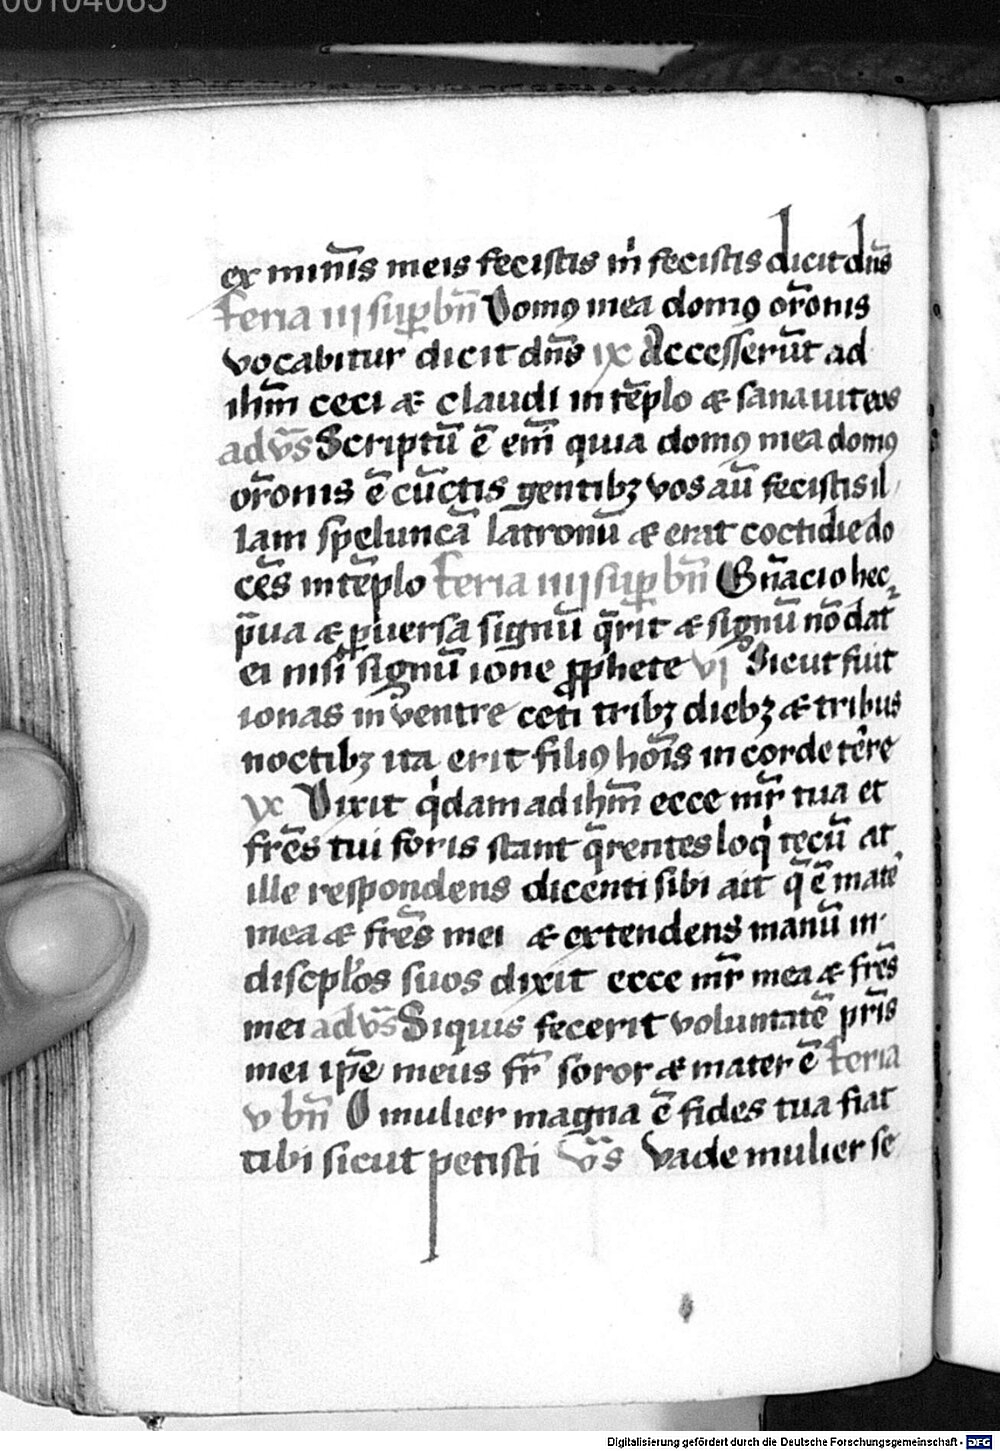 00104065
ex minīs meis fecistis m̍ fecistis dicit dn̄s
feria iij sup̱ bn̄ Domꝯ mea domꝯ or̄onis
vocabitur dicit dn̄s ix Accesserūt ad
ihm̄ ceci æ claudi in tēplo æ sanauit eos
ad vs̄ Scriptū ē em̄ quia domꝯ mea domꝯ
or̄onis ē cūctis gentibꝫ vos aū fecistis il
lam speluncā latronū æ erat coctidie do
cēs in tēplo feria iiij sup̱ bn̄ Gn̄acio hec
p̄ua æ ꝑuersa signū q̄rit æ signū nō dat̄
ei nisi signū ione ꝓphete vj Sicut fuit
ionas in ventre ceti tribꝫ diebꝫ æ tribus
noctibꝫ ita erit filiꝯ hoīs in corde tēre
ix Dixit q̍dam ad ihm̄ ecce mr̄ tua et
frēs tui foris stant q̄rentes loq̍ tecū at
ille respondens dicenti sibi ait q̄ ē mat̄
mea æ frēs mei æ extendens manū in
discplōs suos dixit ecce mr̄ mea æ frēs
mei ad vs̄ Siquis fecerit voluntatē pr̄is
mei ip̄e meus fr̄ soror æ mater ē feria
v bn̄ O mulier magna ē fides tua fiat
tibi sicut petisti vs̄ Vade mulier se
Digitalisierung gefördert durch die Deutsche Forschungsgemeinschaft - DFG